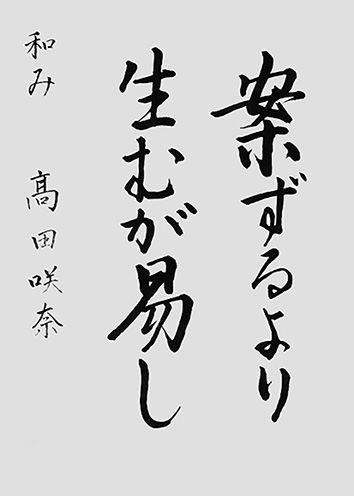 案ずるより
生むが易し
和み 髙田咲奈